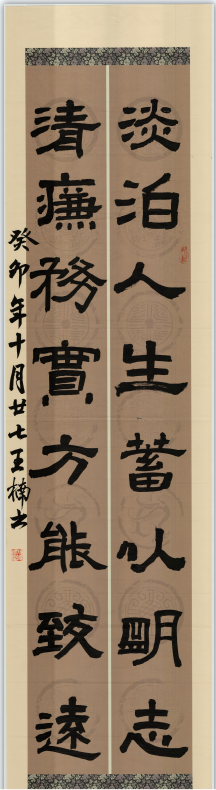 淡泊人生蓄以明志
清廉務實方能致遠
癸卯年十月廿七王楠書